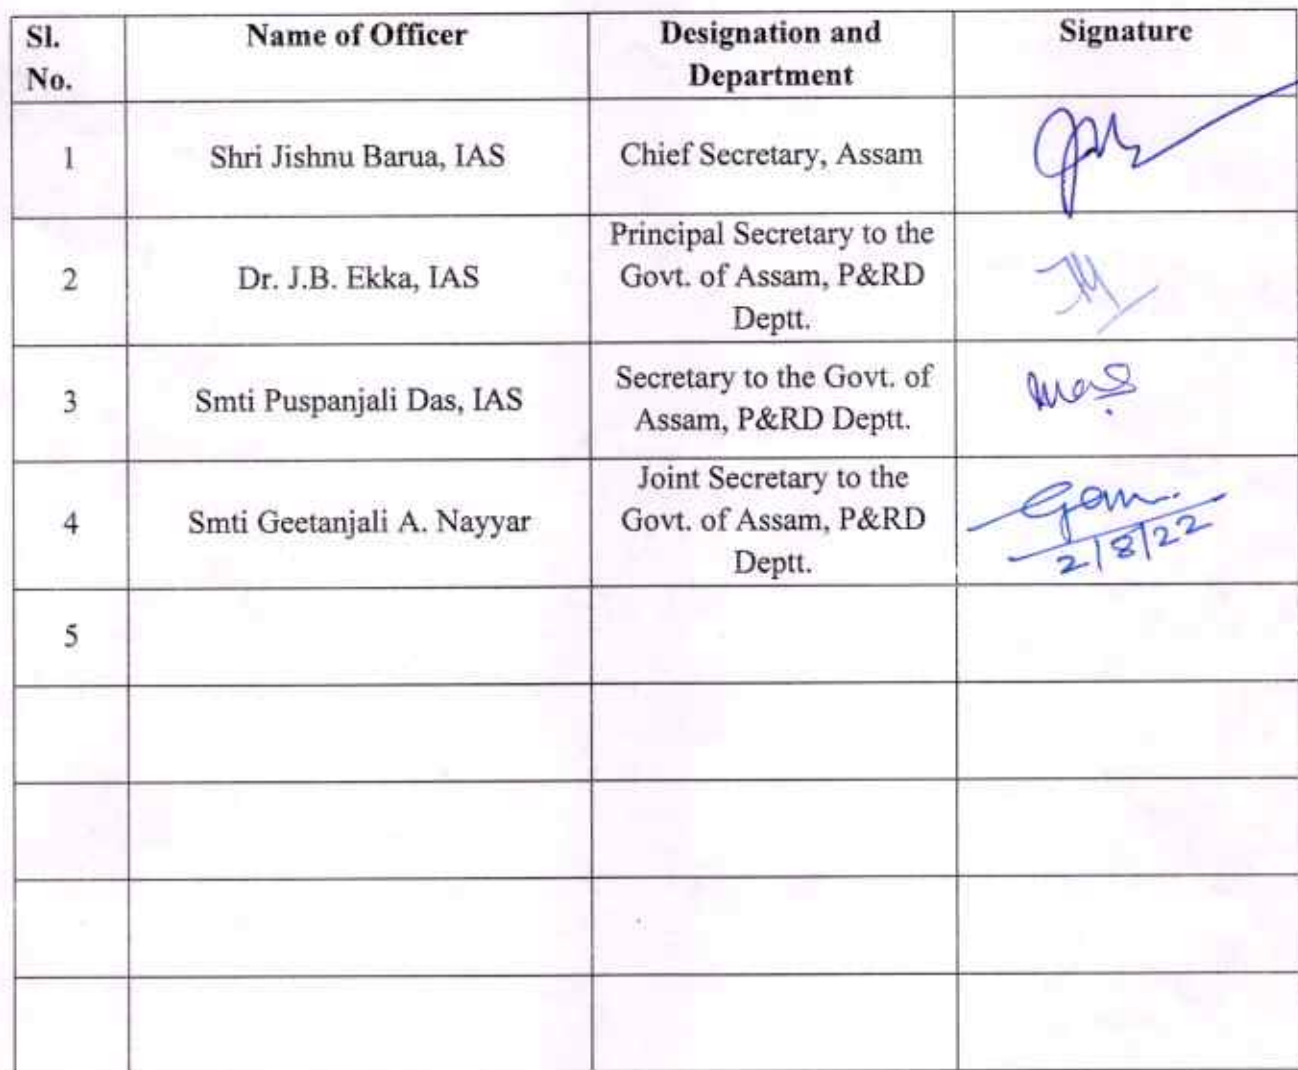 Sl.
No.
Name of Officer
Designation and
Department
Signature
1
Shri Jishnu Barua, IAS
Chief Secretary, Assam
2
Dr. J.B. Ekka, IAS
Principal Secretary to the
Govt. of Assam, P&RD
Deptt.
3
Smti Puspanjali Das, IAS
Secretary to the Govt. of
Assam, P&RD Deptt.
4
Smti Geetanjali A. Nayyar
Joint Secretary to the
Govt. of Assam, P&RD
Deptt.
2/8/22
5